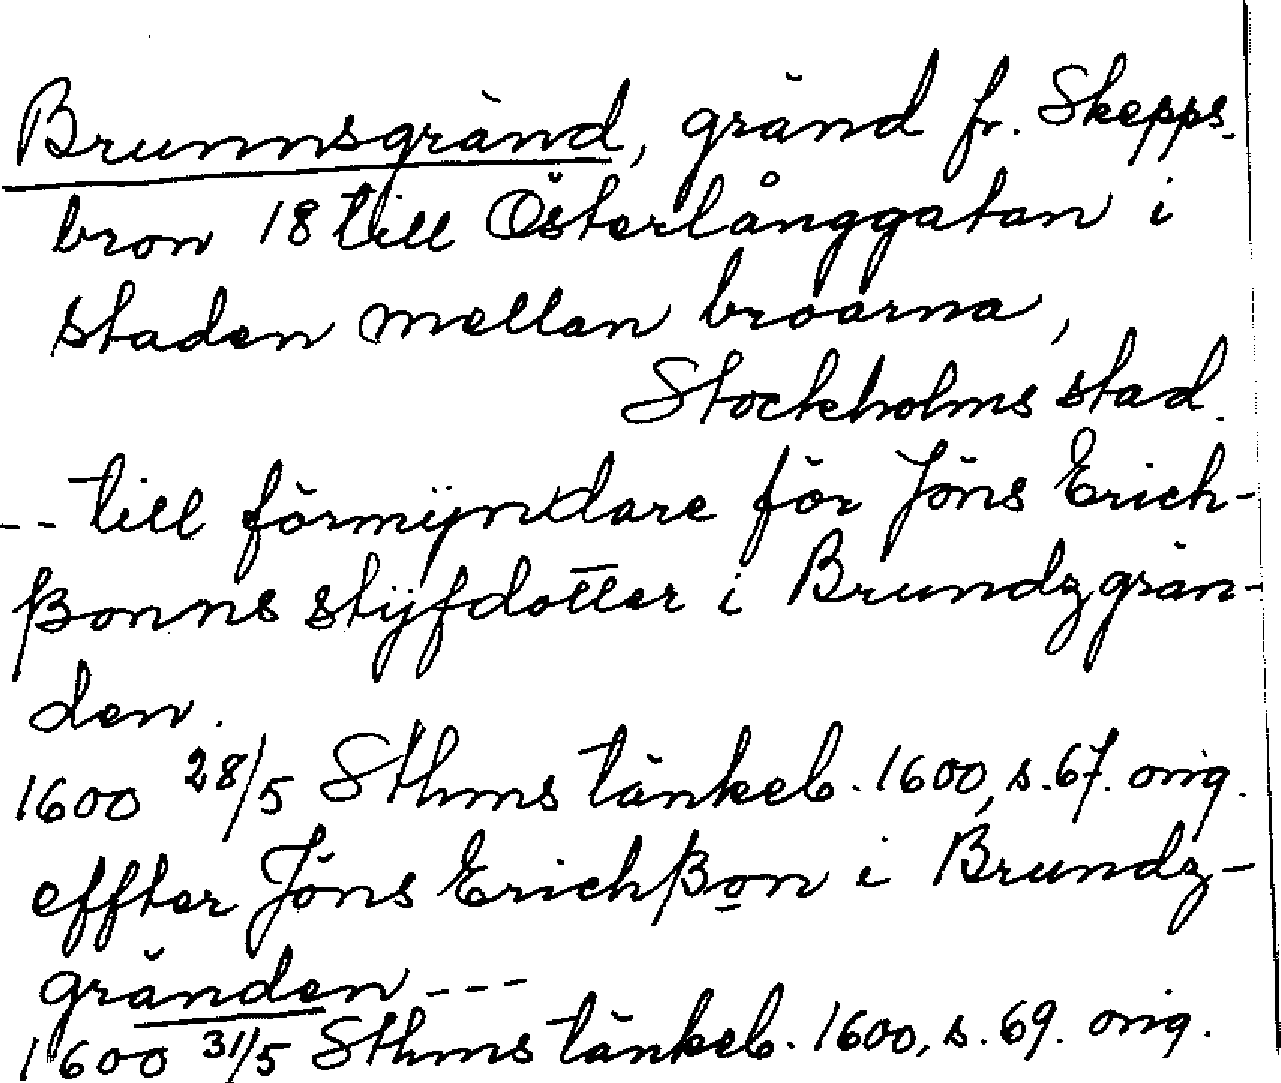 Brunnsgränd, gränd fr. Skepps-
bron 18 till Österlånggatan i
staden mellan broarna,
Stockholms stad.
-- till förmÿndare för Jöns Erich-
ßonns stÿfdotter i Brundzgrän-
den.
1600 28/5 Sthms tänkeb. 1600, s. 67. orig.
effter Jöns Erichßon i Brundz-
gränden ---
1600 31/5 Sthms tänkeb. 1600, s. 69. orig.